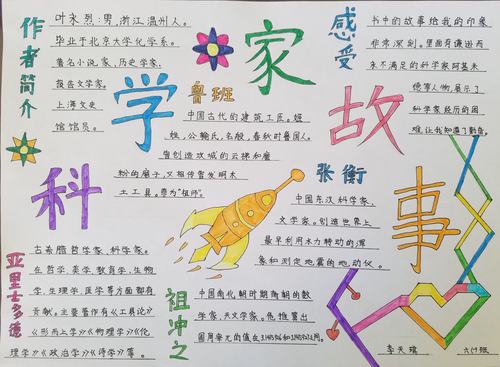 作者简介
叶永烈:男,浙江温州人。
毕业于北京大学化学系。
著名小说家、历史学家、
报告文学家。
上海文史
馆馆员。
科学家故事
感受
书中的故事给我的印象
非常深刻。里面有谦逊而
永不满足的科学家阿基米
使害人物,展示了
科学家经历的困
难,让我知道了勤奋。
鲁班
中国古代的建筑工匠。姬
姓,公输氏,名般,春秋时鲁国人。
曾创造攻城的云梯和磨
粉的磨子,又相传曾发明木
土工具。尊为“祖师”。
张衡
中国东汉科学家、
文学家。创造世界上
最早利用水力转动的浑
象和测定地震的地动仪。
亚里士多德
古希腊哲学家、科学家。
在哲学、美学、教育学、生物
学、生理学、医学等方面都有
贡献。主要著作有《工具论》
《形而上学》《物理学》《伦
理学》《政治学》《诗学》等。
祖冲之
中国南北朝时期南朝的数
学家、天文学家。他推算出
圆周率元的值在3.1415926和3.1415927之间。
李天瑞
六(1)班